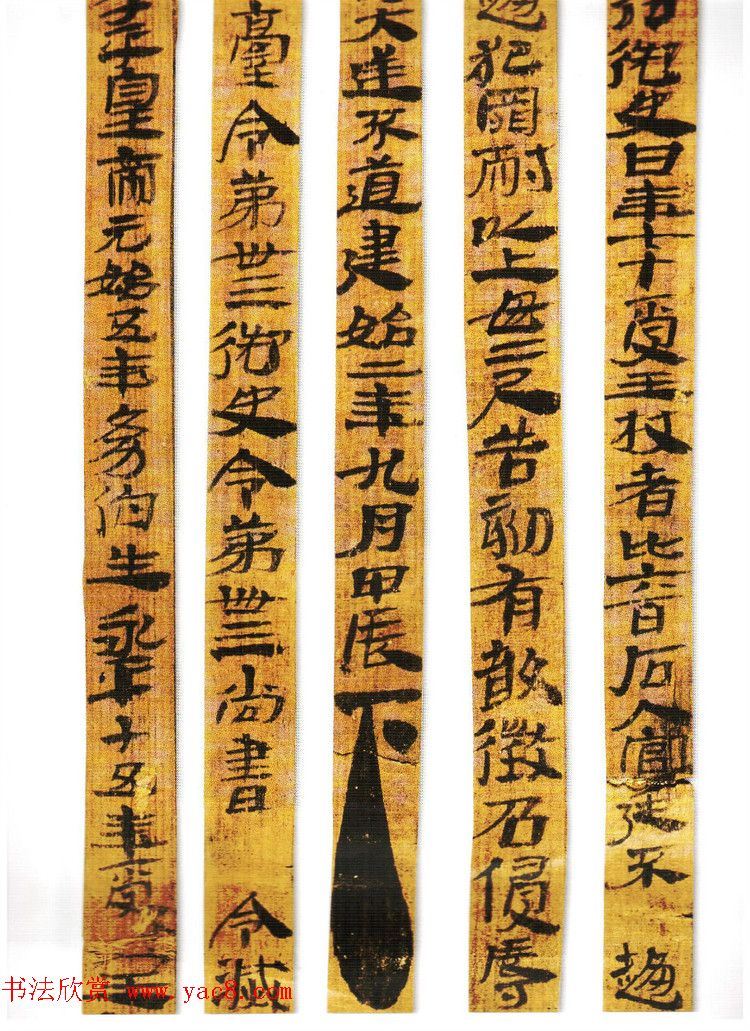 御史曰年七十受王杖者比六百石入官廷不趨
犯罪耐以上毋二尺告劾有敢徵召侵辱
大逆不道建始二年九月甲辰下
臺令第卅三御史令第卌三尚書令滅
皇帝元始五年幼伯生永平十五年受王
书法欣赏 www.yac8.com